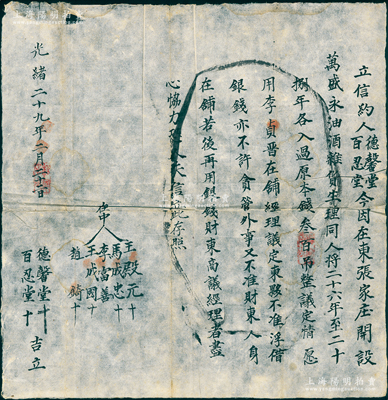 立信約人德馨堂百忍堂今因在東張家庄開設
萬盛永油酒雜貨生理同人將二十六年至二十
捌年各入過原本錢叁百吊整議定情愿
用李貞晋在鋪經理議定東夥不准浮借
銀錢亦不許貪管外事又不准財東人身
在鋪若後再用銀錢財東商議經理者盡
心協力 存照
中人
王殿元十
馬成忠十
李富善
王成因十
趙錡十
德馨堂十
百忍堂十
吉立
光緒二十九年二月二十日
上海陽明拍賣